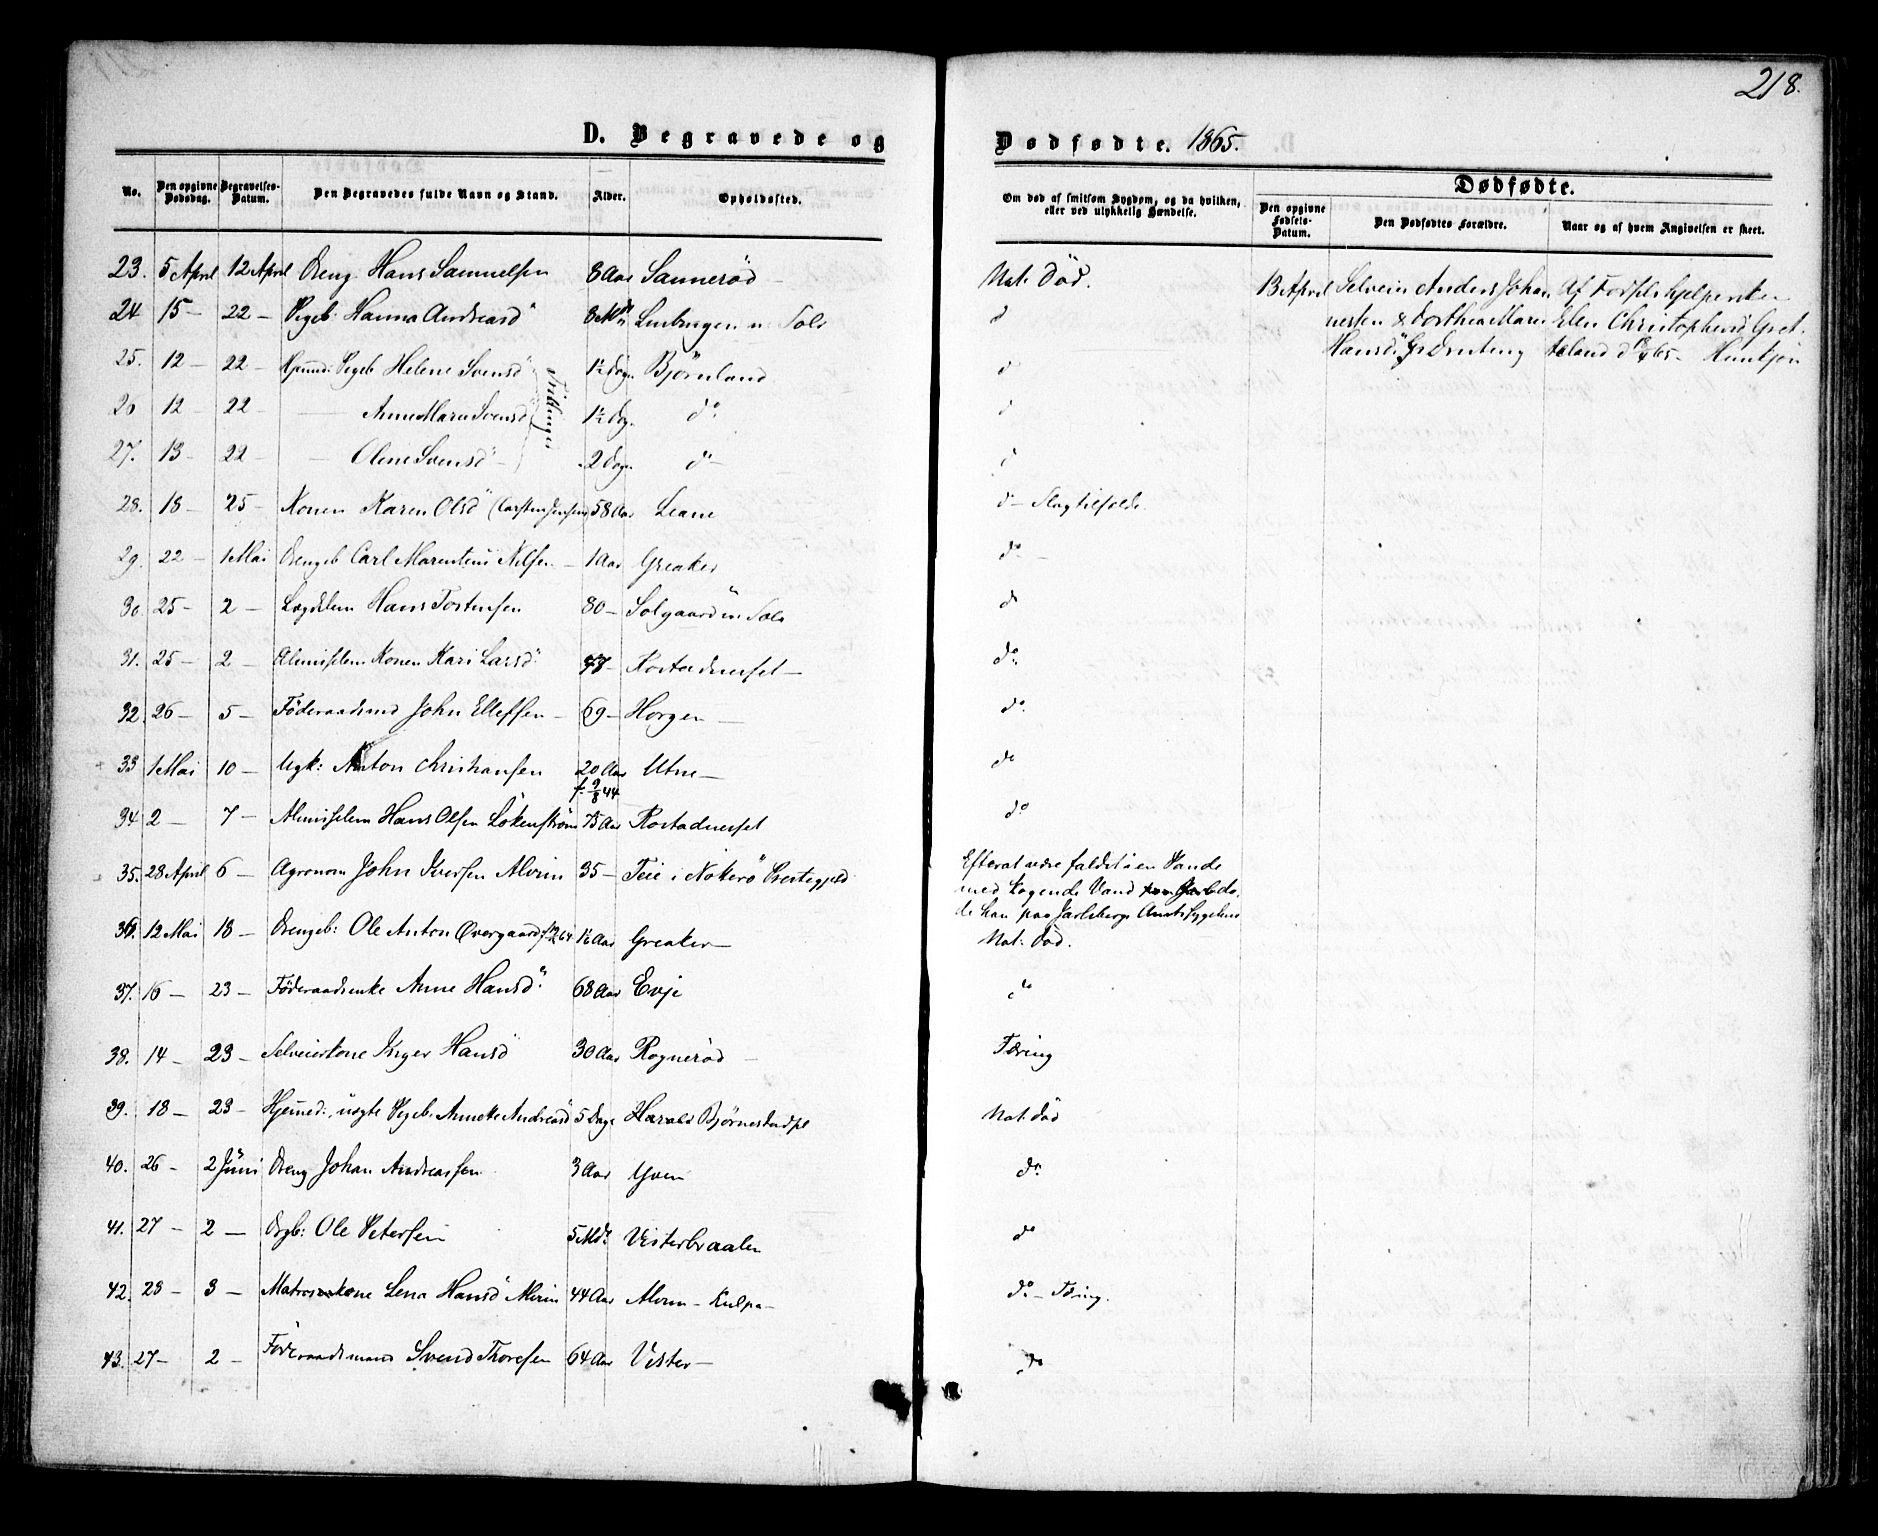 218.
D. Begravede og Dødfødte. 1865.
No. Den opgivne Dødsdag. Begravelses-Datum. Den Begravedes fulde Navn og Stand. Alder. Opholdssted. Om død af smitsom Sygdom, og da hvilken, eller ved ulykkelig Hændelse. Dødfødte.
Den opgivne Fødsels-Datum. Den Dødfødtes Forældre. Naar og af hvem Angivelsen er skeet.
23. 5 April 12 April Dreng Hans Samuelsen 8 Aar Sannerød Nat: Død. 13 April Selveier Anders Johan Af Fødselshjelpersken
24 15 — 22 — Pigeb: Hanna Andreasd 8 Md Solv d nesen & Dorthea Maria Elen Christophersd Gret
Hansd:
25. 12 — 22 — Pigeb Helene Svensd 1½ Døgn Bjørnland d
Trillinger
26 12 — 22 — — Anne Maria Svensd 1½ Døg. do d
27. 13 — 22 — — Oline Svensd — 2 Døgn d — d
28. 18 — 25 — Konen Karen Olsd (Carsten Jensen) 58 Aar Leane d — Slagtilfælde.
29. 22 — 1 Mai Drengeb Carl Marentius Nilsen — 1 Aar Greaker do —
30. 25 — 2 — Lægdslem Hans Tostensen 80 — Solgaard d
31. 25 — 2 — Almislem Konen Kari Larsd: 47 — Rostadneset — do.
32. 26 — 5 — Föderaadsmd John Elleffsen — 69 — Horgen — do.
33 1 Mai 10 — Ugk: Anton Christiansen 20 Aar Utne — do
f. 9/8 44
34. 2 — 7 — Almislem Hans Olsen Lökenström 75 Aar Rostadneset do
35. 28 April 6 — Agronom John Iversen Alvim 35 — Teie i Nøterö Prestegjeld Efter at være faldet i en Pande
med kogende Vand döde
han paa Jarlsberg Amtssygehus
36. 12 Mai 18 — Drengeb: Ole Anton Overgaard 1½ Aar Greaker — Nat: Død.
37. 16 — 23 — Föderaadsenke Anne Hansd: 68 Aar Evje do
38. 14 — 23 — Selveierkone Inger Hansd 30 Aar Rognerød — Tæring
39. 18 — 23 — Hjemmed: uægte Pigeb: Annette Andreasd 5 Dage Harald Bjørnestadpl Nat: Død
40. 26 — 2 Juni Dreng Johan Andreassen 3 Aar Yven do.
41. 27 — 2 — Drgb: Ole Petersen 5 Md: Visterbraaten do
42. 28 — 3 — Matroskone Lena Hansd Alvim 44 Aar Alvim — Kulpa — do — Tæring.
43. 27 — 2 — Föderaadsmand Svend Thoresen 64 Aar Vister — do